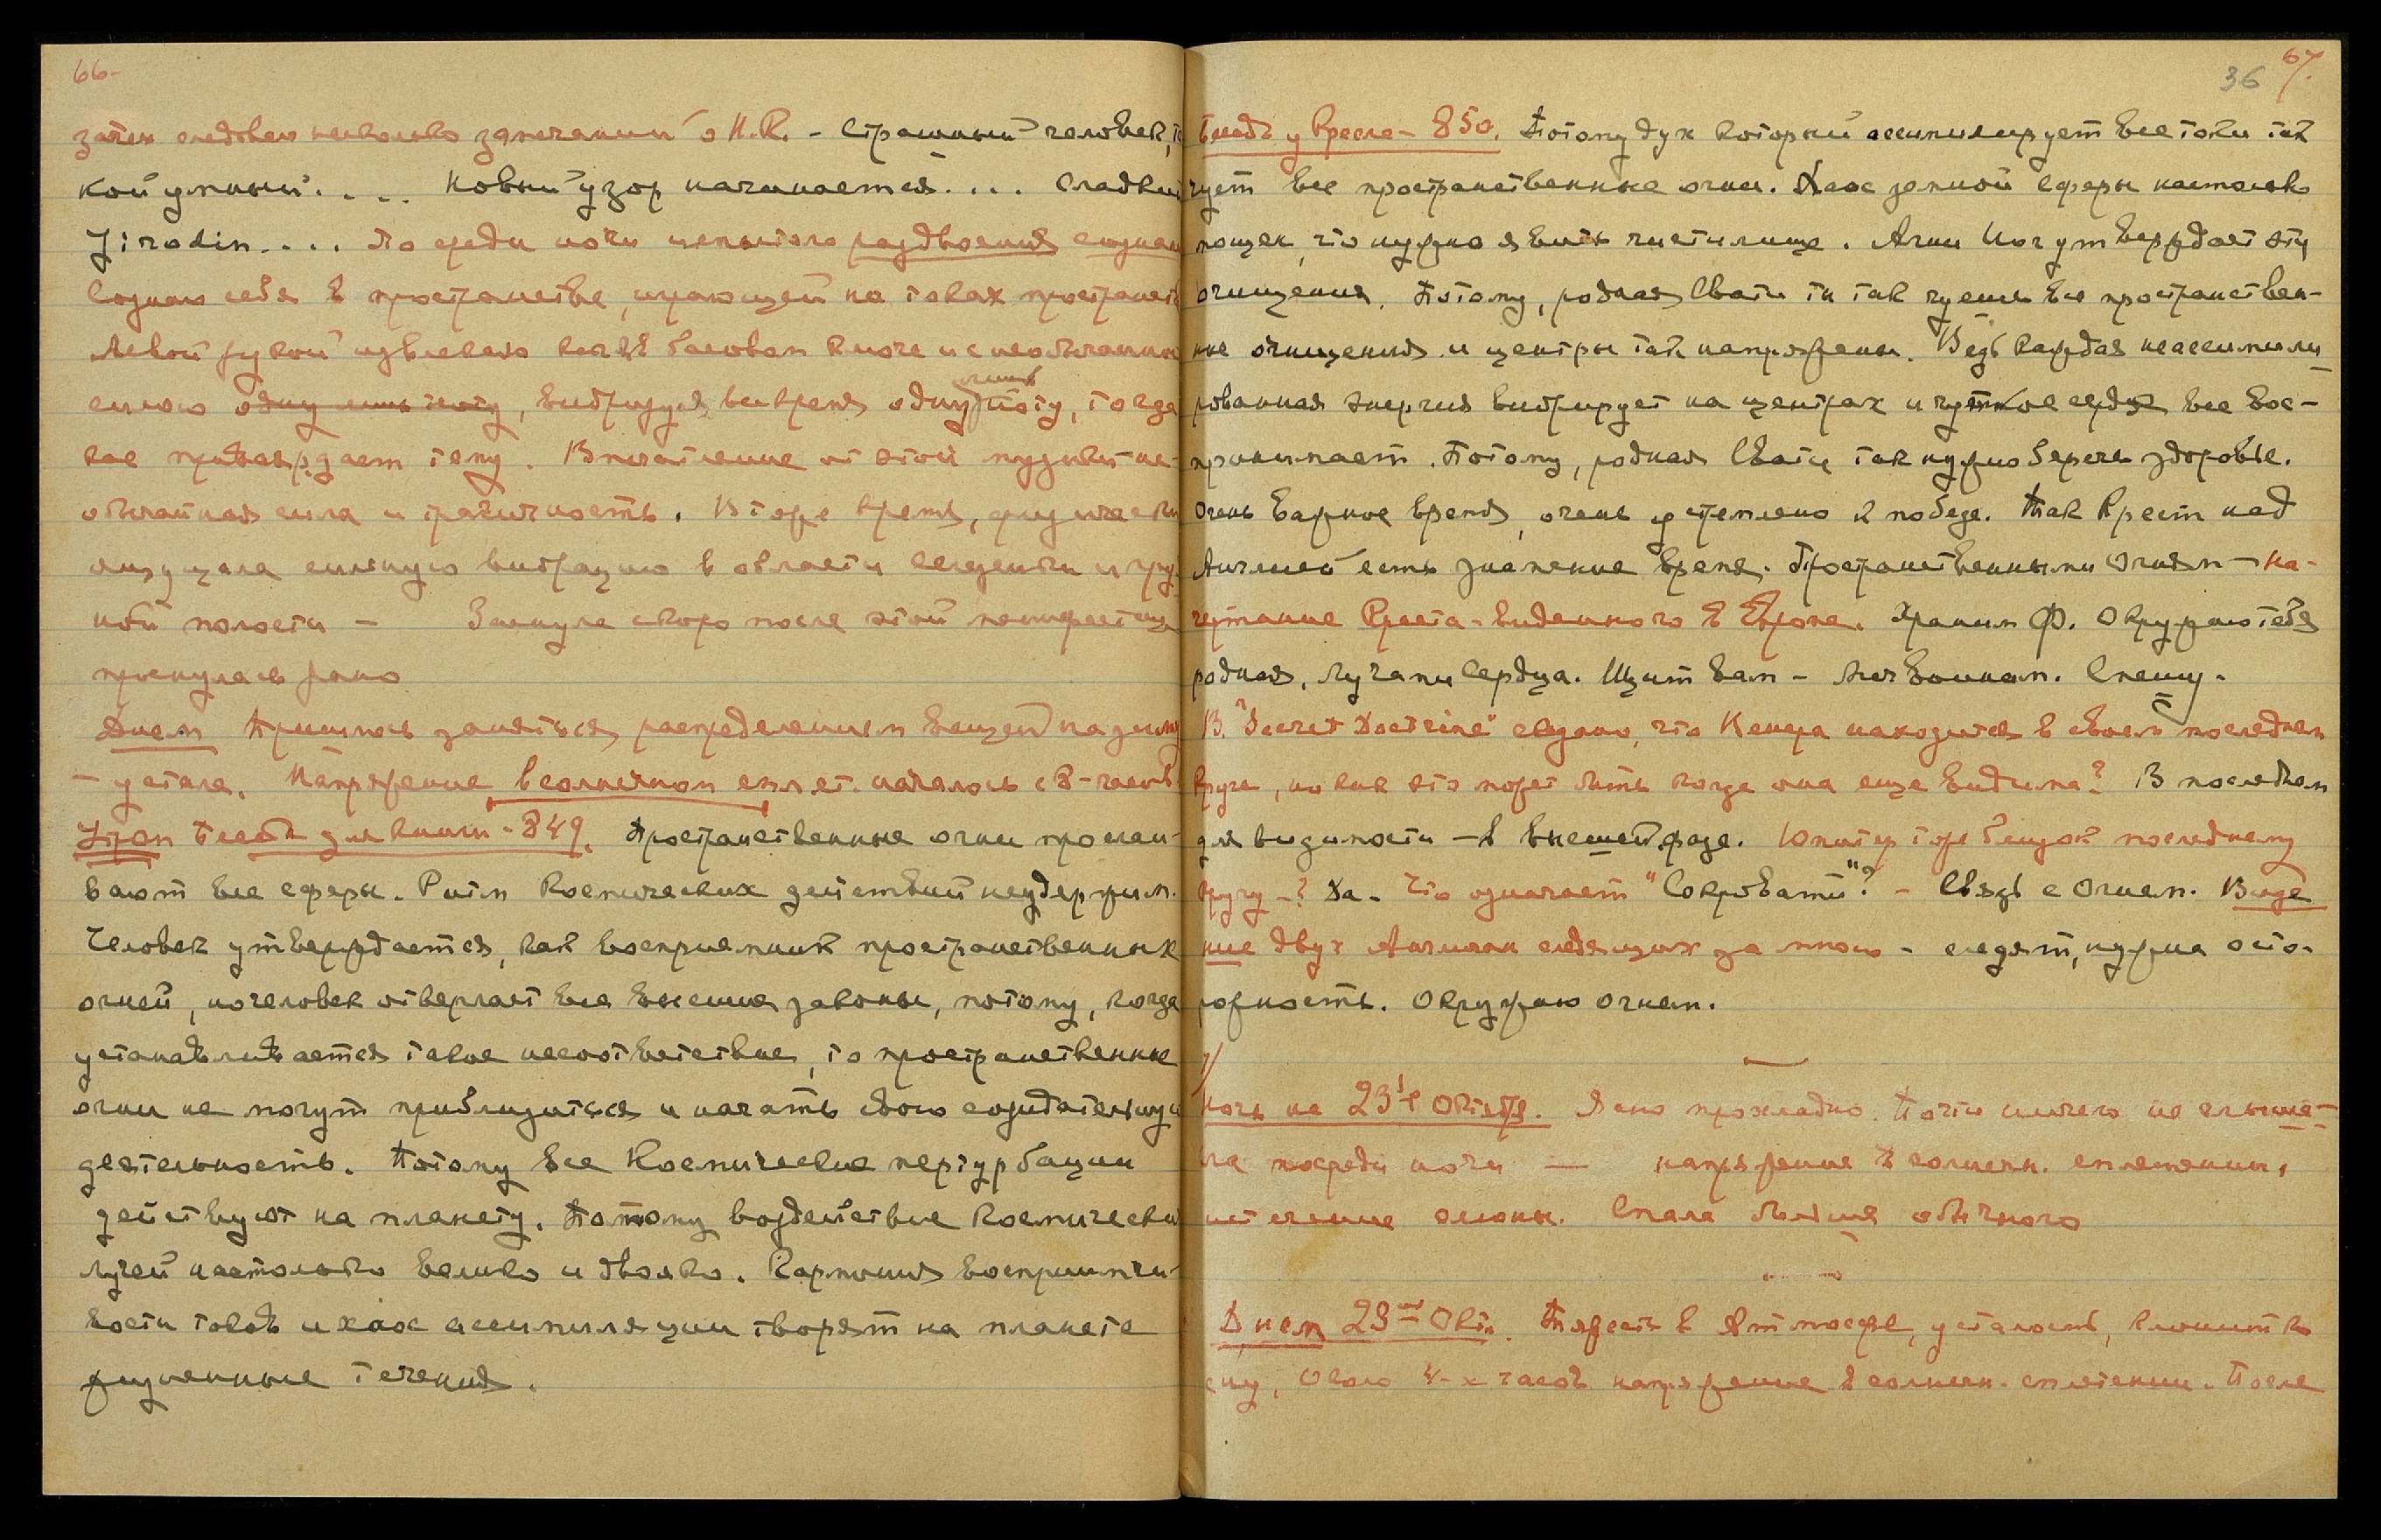 66-
затем следовало несколько замечаний о Н.К. - Страшный человек, та
кой умный. . . . Новый узор начинается. . . . Сладкий
Jirodin. . . . По среди ночи испытала раздвоения сознан
Сознаю себя в пространстве, играющей на токах пространст
Левой рукой извлекаю как бы басовом ключе и с необычайно
силою одну лишь ноту, вибрируя все время одну лишь ноту, тогда
кое праверждает тему. Впечатление от этой музыки - не-
обычайная сила и трагичность. В то же время, физически
ощущала сильную вибрацию в области селезенки и груд
ной полости - Заснула скоро после этой
проснулась рано
Днем Пришлось заняться распределением вещей на зиму
- устала. Напряжение в солнечном сплет. началось с 3- часов
Утром Беседа для книги - 849. Пространственные огни прослаи-
вают все сферы. Ритм Космических действий неудержим.
Человек утверждается, как восприемник пространственных
огней, но человек отвергает все высшие законы, потому, когда
устанавливается такое несоответствие, то пространственные
огни не могут приблизиться и начать свою созидательную
деятельность. Потому все Космические пертурбации
действуют на планету. Потому воздействие Космических
лучей настолько велико и двояко. Гармония восприимчи-
вости токов и хаос ассимиляции творят на планете
жизненные течения.
36 67.
Беседа у Кресла - 850. Потому дух который ассимилирует все токи так
чует все пространственные огни. Хаос земной сферы настолько
мощен, что нужно явить чистилище. Агни Йог утверждает эти
очищения. Потому, родная Свати ты так чуешь все пространствен-
ные очищения и центры так напряжены. Ведь каждая неассимили-
рованная энергия вибрирует на центрах и чуткое сердце все вос-
принимает. Потому, родная Свати так нужно беречь здоровье.
Очень важное время, очень устремлено к победе. Так Крест над
Англией есть знамение время. Пространственными Огнями - на-
чертание Креста - виденного в Европе. Храним Ф. Окружаю тебя
родная, Лучами Сердца. Щит вам - Меч воинам. Спешу.
В "Secret Doctrine" сказано, что Венера находится в своем последнем
круге, но как это может быть когда она еще видима? В последнем
для видимости - в высшей фазе. Юпитер тоже близок последнему
кругу -? Да. Что означает "Сокровати"? - Связь с Огнем. Виде
ние двух Англичан следящих за мною - следят, нужна осто-
рожность. Окружаю огнем.
Ночь на 23-е Октября. Ясно прохладно. Почти ничего не слыша-
ла посреди ночи — напряжение в солнечн. сплетении,
истечение слюны. Спала больше обычного
Днем 23-го Окт. Тяжесть в Атмосфере, усталость, клонит ко
сну, Около 4-х часов напряжение в солнечн. сплетении. После